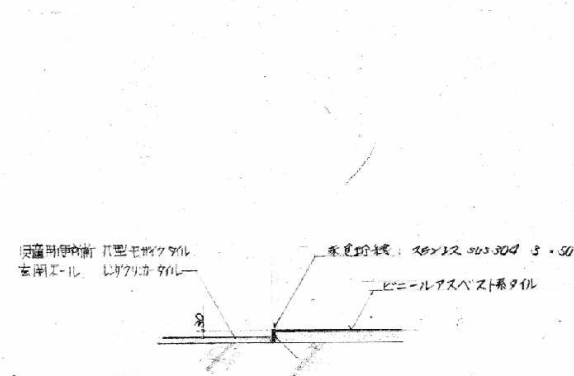 児童用便所 八型モザイクタイル
玄関ホール レンガクリンカータイル
末見切縁: ステンレス SUS304 3×50
ビニールアスベスト系タイル
30